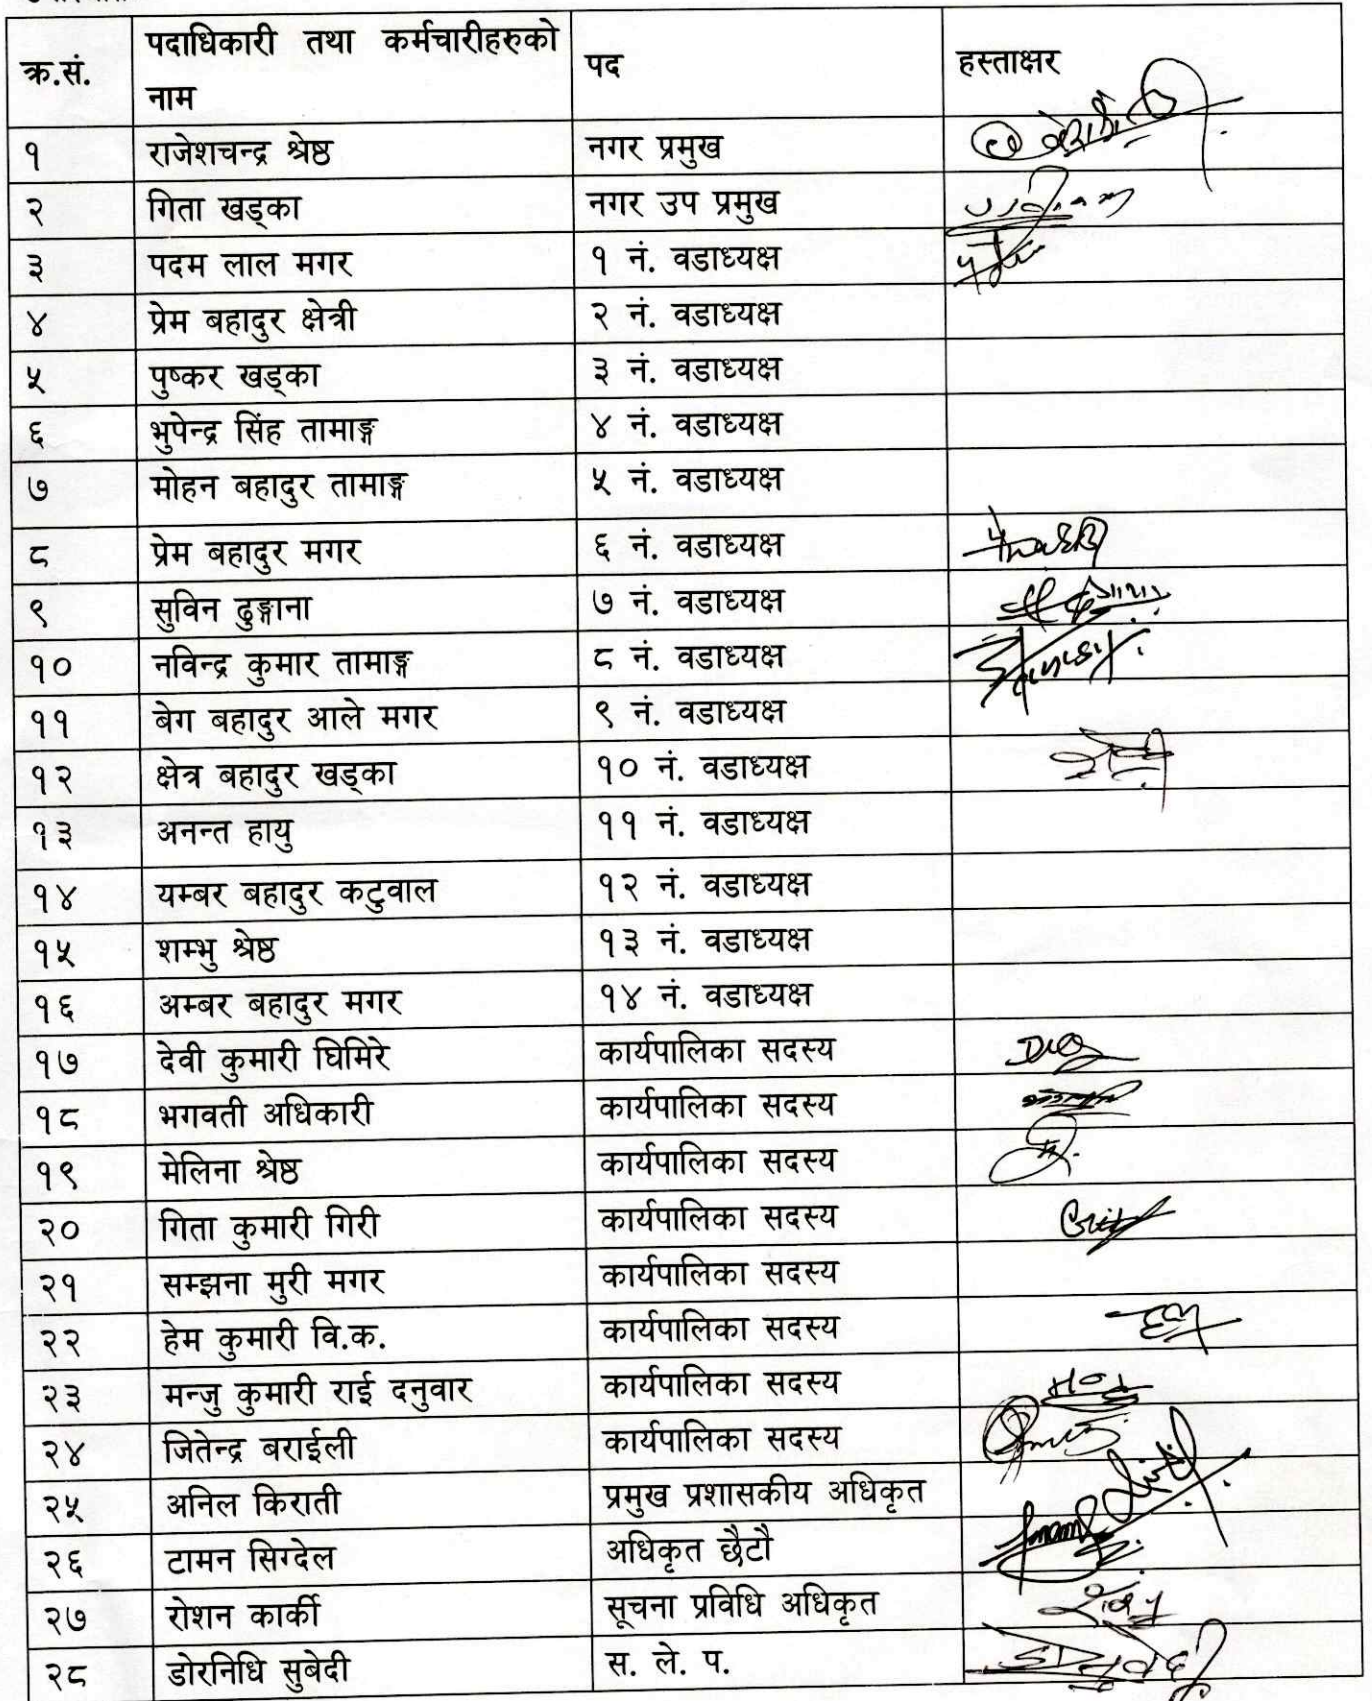 क्र.सं. पदाधिकारी तथा कर्मचारीहरुको नाम पद हस्ताक्षर
१ राजेशचन्द्र श्रेष्ठ नगर प्रमुख
२ गिता खड्का नगर उप प्रमुख
३ पदम लाल मगर १ नं. वडाध्यक्ष
४ प्रेम बहादुर क्षेत्री २ नं. वडाध्यक्ष
५ पुष्कर खड्का ३ नं. वडाध्यक्ष
६ भुपेन्द्र सिंह तामाङ्ग ४ नं. वडाध्यक्ष
७ मोहन बहादुर तामाङ्ग ५ नं. वडाध्यक्ष
८ प्रेम बहादुर मगर ६ नं. वडाध्यक्ष
९ सुविन ढुङ्गाना ७ नं. वडाध्यक्ष
१० नविन्द्र कुमार तामाङ्ग ८ नं. वडाध्यक्ष
११ बेग बहादुर आले मगर ९ नं. वडाध्यक्ष
१२ क्षेत्र बहादुर खड्का १० नं. वडाध्यक्ष
१३ अनन्त हायु ११ नं. वडाध्यक्ष
१४ यम्बर बहादुर कटुवाल १२ नं. वडाध्यक्ष
१५ शम्भु श्रेष्ठ १३ नं. वडाध्यक्ष
१६ अम्बर बहादुर मगर १४ नं. वडाध्यक्ष
१७ देवी कुमारी घिमिरे कार्यपालिका सदस्य
१८ भगवती अधिकारी कार्यपालिका सदस्य
१९ मेलिना श्रेष्ठ कार्यपालिका सदस्य
२० गिता कुमारी गिरी कार्यपालिका सदस्य
२१ सम्झना मुरी मगर कार्यपालिका सदस्य
२२ हेम कुमारी वि.क. कार्यपालिका सदस्य
२३ मन्जु कुमारी राई दनुवार कार्यपालिका सदस्य
२४ जितेन्द्र बराईली कार्यपालिका सदस्य
२५ अनिल किराती प्रमुख प्रशासकीय अधिकृत
२६ टामन सिग्देल अधिकृत छैटौ
२७ रोशन कार्की सूचना प्रविधि अधिकृत
२८ डोरनिधि सुबेदी स. ले. प.